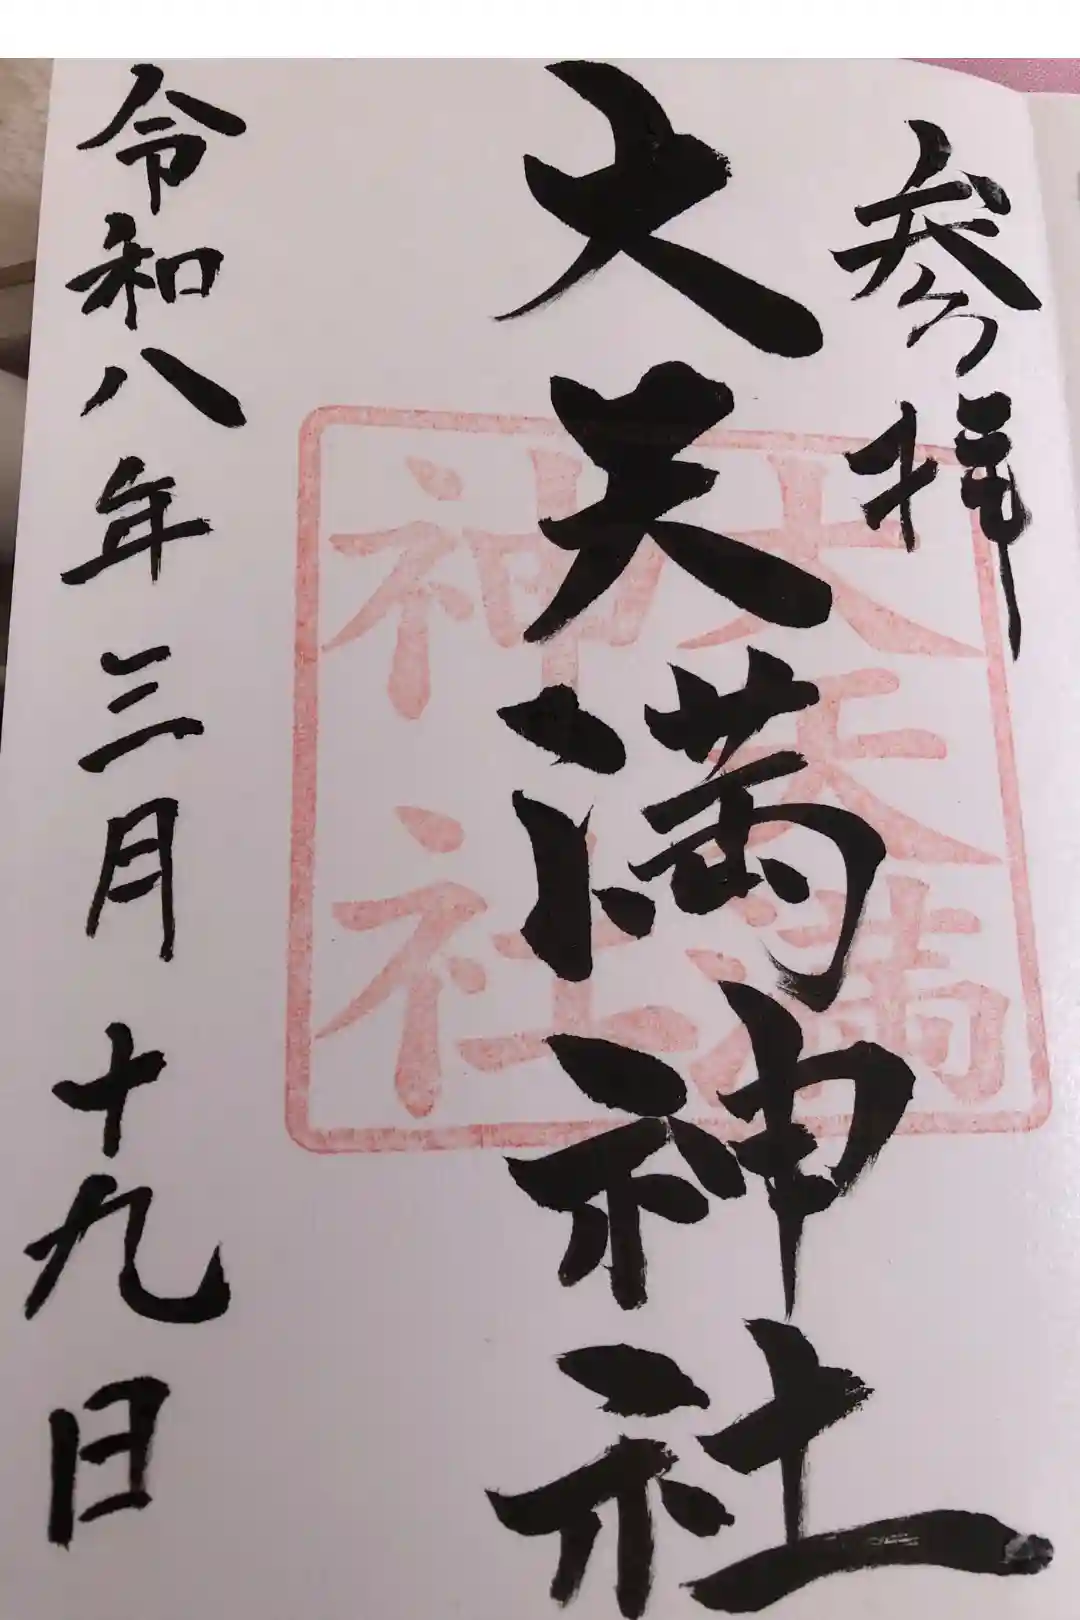 参拝
大天満神社
大天満
神社
令和八年三月十九日